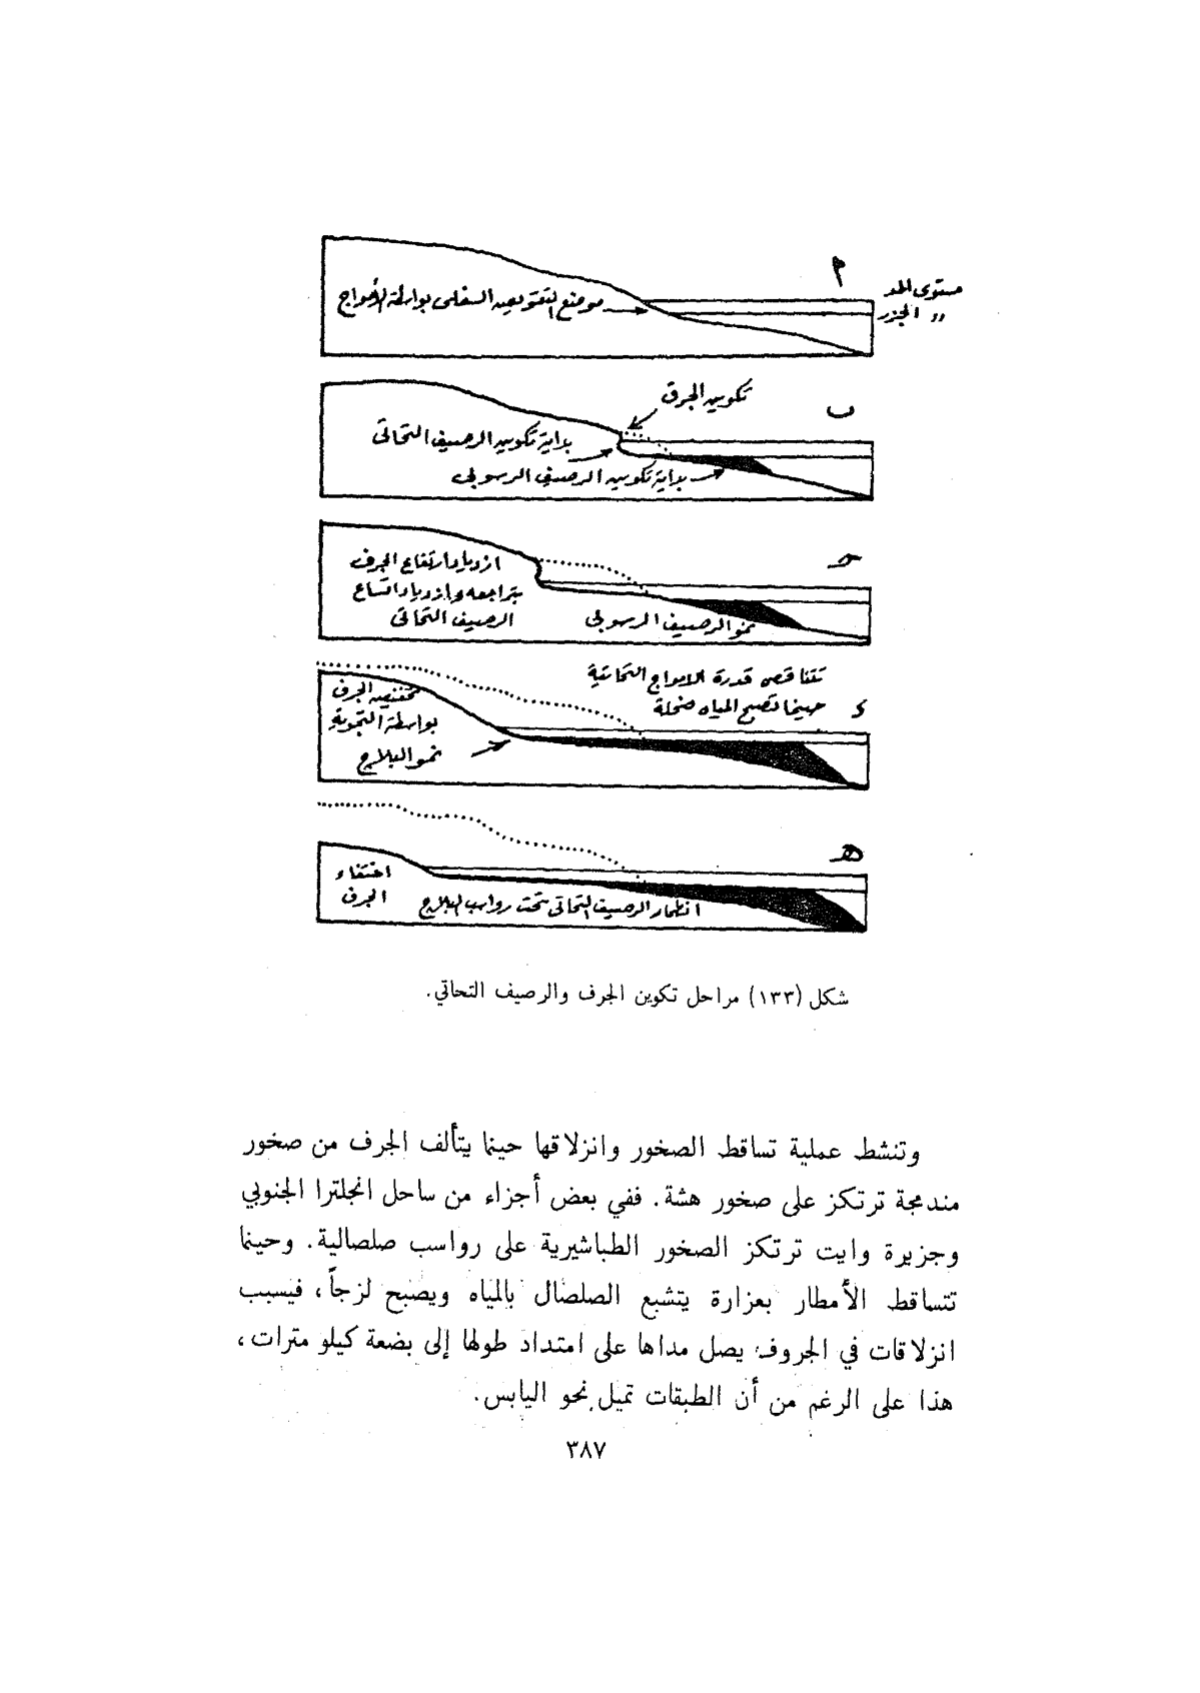 أ
مستوى المد
〃 الجزر
موضع التقويض السفلى بواسطة الأمواج
ب
تكوين الجرف
بداية تكوين الرصيف التحاتى
بداية تكوين الرصيف الرسوبى
حـ
ازدياد ارتفاع الجرف
بتراجعه وازدياد اتساع
الرصيف التحاتى
نمو الرصيف الرسوبى
د
تتناقص قدرة الامواج التحاتية
حينما تصبح المياه ضحلة
تخفيض الجرف
بواسطة التجوية
نمو البلاج
هـ
اختفاء
الجرف
انطمار الرصيف التحاتى تحت رواسب البلاج
شكل (١٣٣) مراحل تكوين الجرف والرصيف التحاتي.
وتنشط عملية تساقط الصخور وانزلاقها حينما يتألف الجرف من صخور
مندمجة ترتكز على صخور هشة. ففي بعض أجزاء من ساحل انجلترا الجنوبي
وجزيرة وايت ترتكز الصخور الطباشيرية على رواسب صلصالية. وحينما
تتساقط الأمطار بعزارة يتشبع الصلصال بالمياه ويصبح لزجاً، فيسبب
انزلاقات في الجروف يصل مداها على امتداد طولها إلى بضعة كيلو مترات،
هذا على الرغم من أن الطبقات تميل نحو اليابس.
٣٨٧